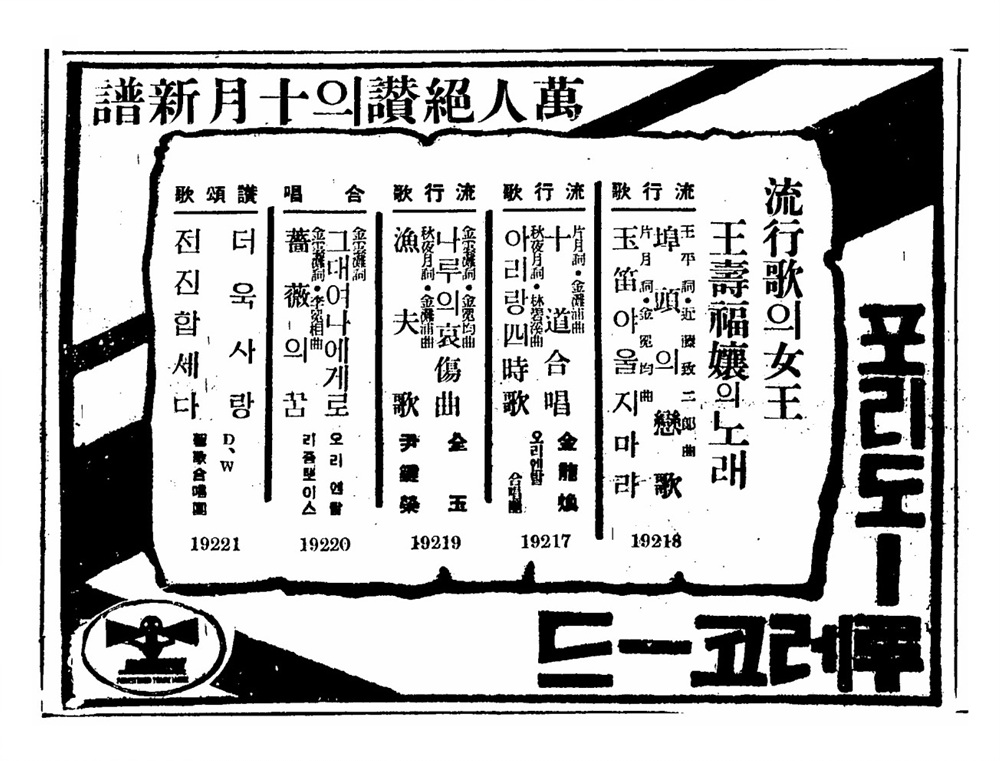 萬人絕讚의十月新譜
流行歌의女王
王壽福孃의노래
流行歌
王平詞·近藤致二郞曲
埠頭의戀歌
片月詞·金冕均曲
玉笛아울지마라
19218
流行歌
片月詞·金灘浦曲
十道合唱
金龍煥
秋夜月詞·林碧溪曲
아리랑四時歌
오리엔탈合唱團
19217
流行歌
金雲灘詞·金冕均曲
나루의哀傷曲
全玉
秋夜月詞·金灘浦曲
漁夫歌
尹鍵榮
19219
合唱
金雲灘詞
그대여나에게로
오리엔탈
金雲灘詞·李冕相曲
薔薇의꿈
리즘뽀이스
19220
讚頌歌
더욱사랑
D、W
전진합세다
聖歌合唱團
19221
포리도ー
루레코ー드